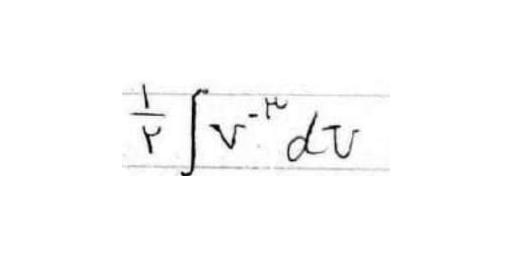 \frac{۱}{۲} \int v^{-۳} dv